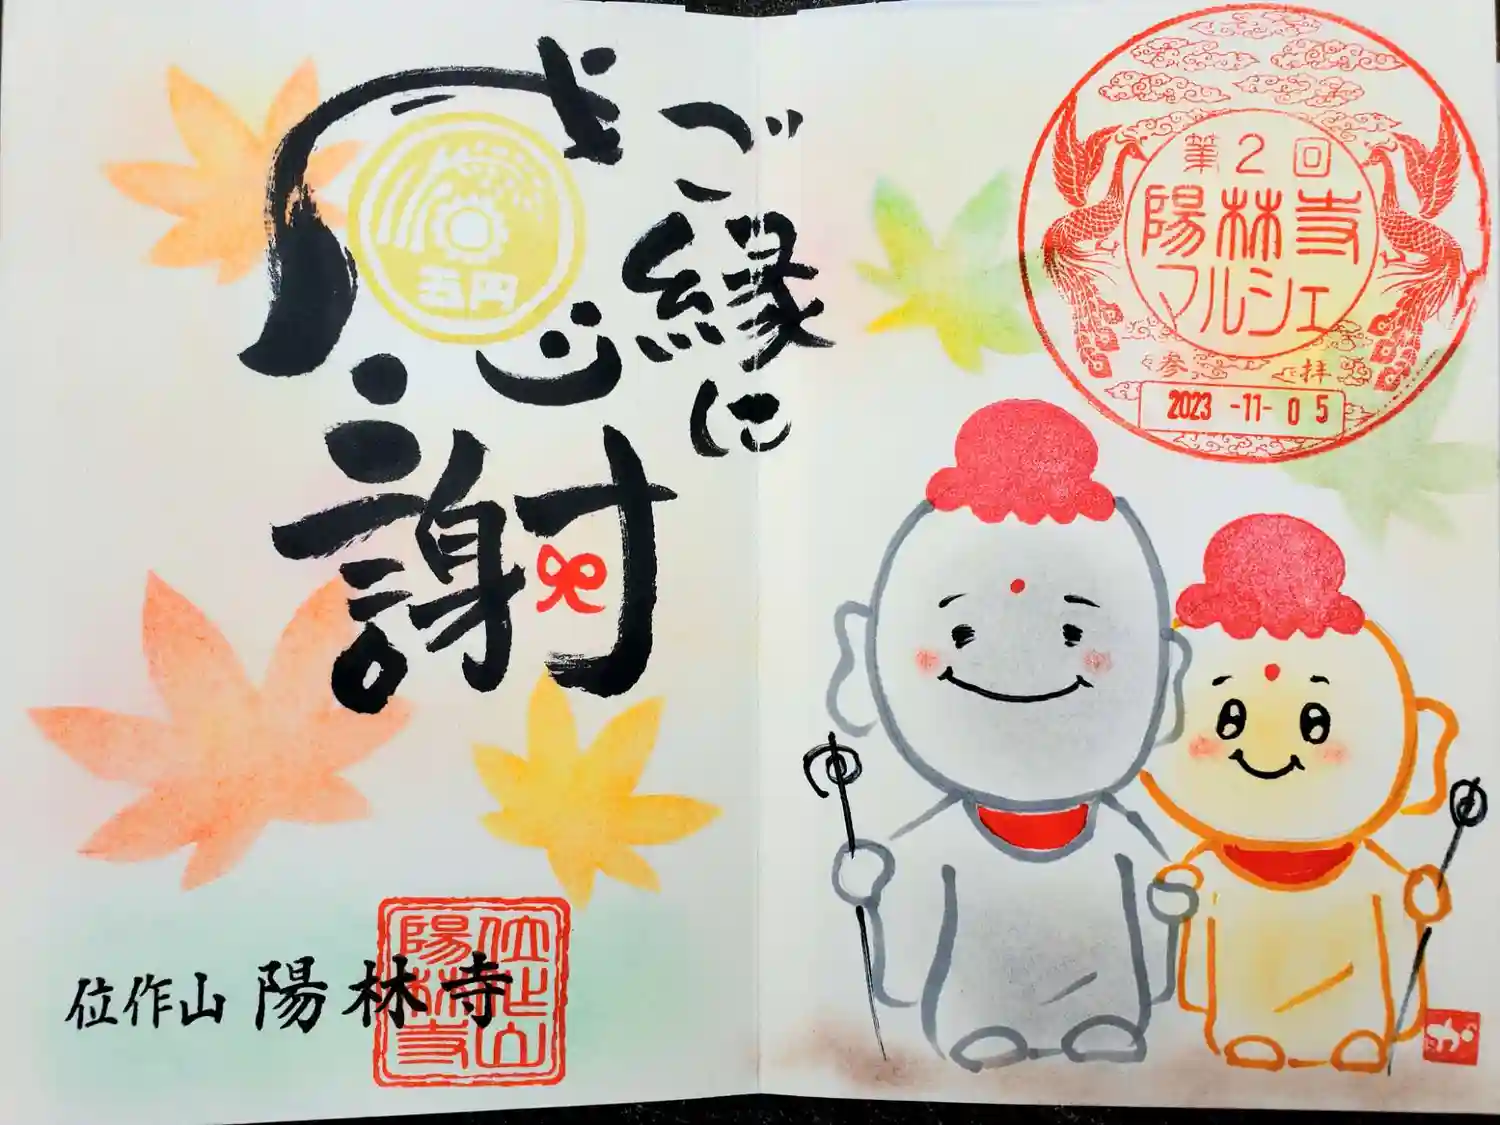 ご縁に
感謝
五円
位作山 陽林寺
位作山
陽林寺
第2回
陽林寺
マルシェ
参拝
2023 -11- 05